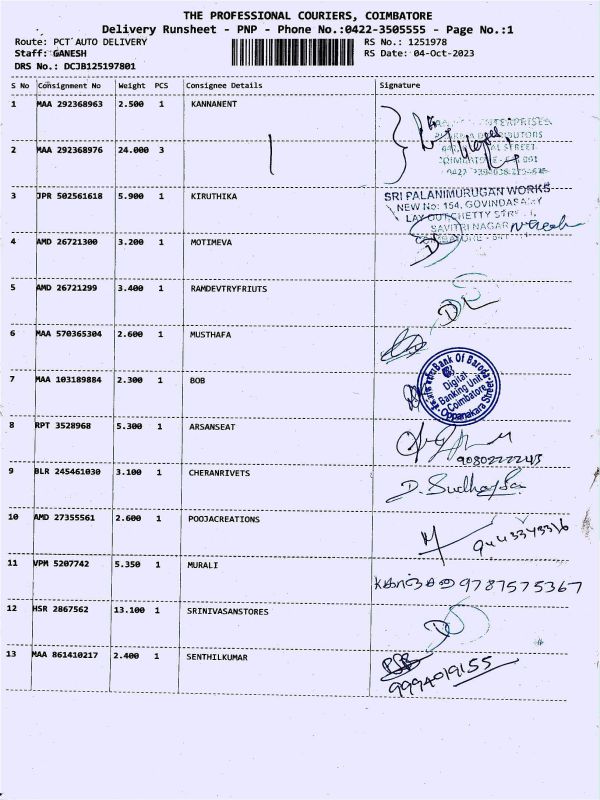 THE PROFESSIONAL COURIERS, COIMBATORE
Delivery Runsheet - PNP - Phone No.:0422-3505555 - Page No.:1
Route: PCT AUTO DELIVERY RS No.: 1251978
Staff: GANESH RS Date: 04-Oct-2023
DRS No.: DCJB125197801
S No Consignment No Weight PCS Consignee Details Signature
1 MAA 292368963 2.500 1 KANNANENT
ENTERPRISES
2 MAA 292368976 24.000 3
3 JPR 502561618 5.900 1 KIRUTHIKA
SRI PALANIMURUGAN WORKS
NEW No: 154, GOVINDASAMY
LAY OUT, CHETTY STREET,
SAVITRI NAGAR
4 AMD 26721300 3.200 1 MOTIMEVA
5 AMD 26721299 3.400 1 RAMDEVTRYFRIUTS
6 MAA 570365304 2.600 1 MUSTHAFA
7 MAA 103189884 2.300 1 BOB
Bank Of Baroda
Digital
Banking Unit
Coimbatore
Oppanakara Street
8 RPT 3528968 5.300 1 ARSANSEAT
9 BLR 245461030 3.100 1 CHERANRIVETS
10 AMD 27355561 2.600 1 POOJACREATIONS
9443343316
11 VPM 5207742 5.350 1 MURALI
9787575367
12 HSR 2867562 13.100 1 SRINIVASANSTORES
13 MAA 861410217 2.400 1 SENTHILKUMAR
9994019155